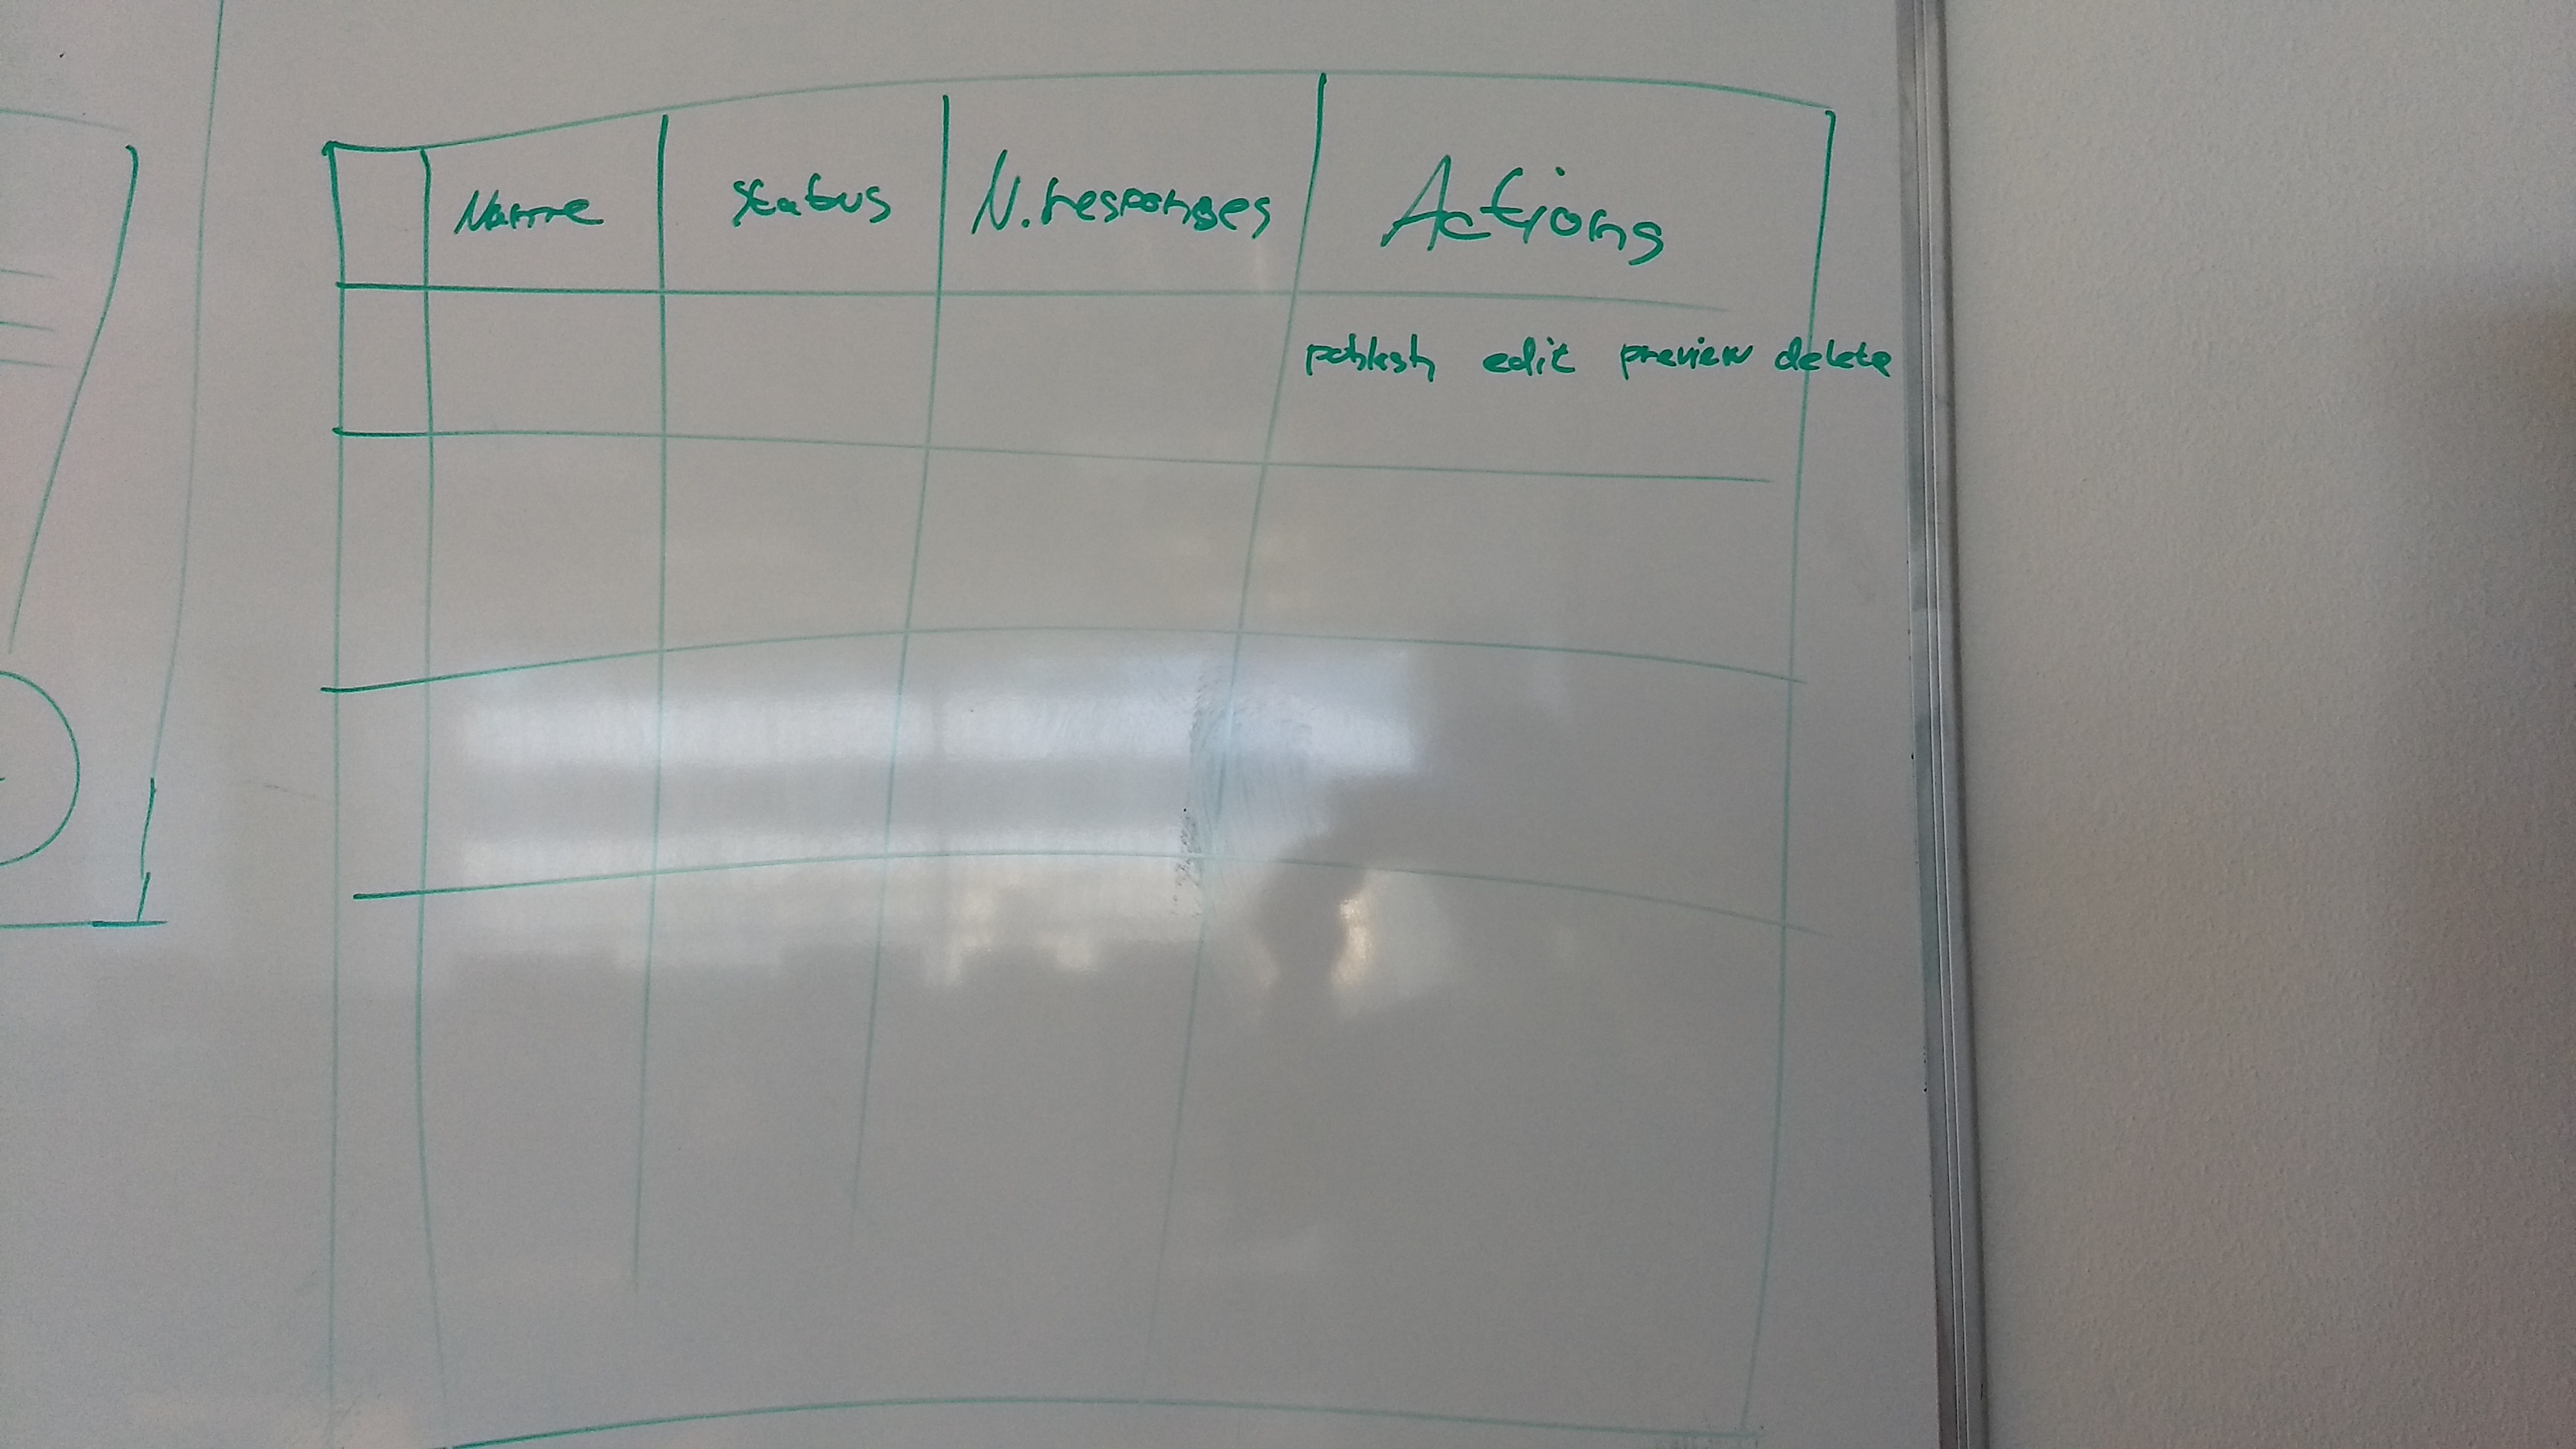 Name Status N. responses Actions
publish edit preview delete